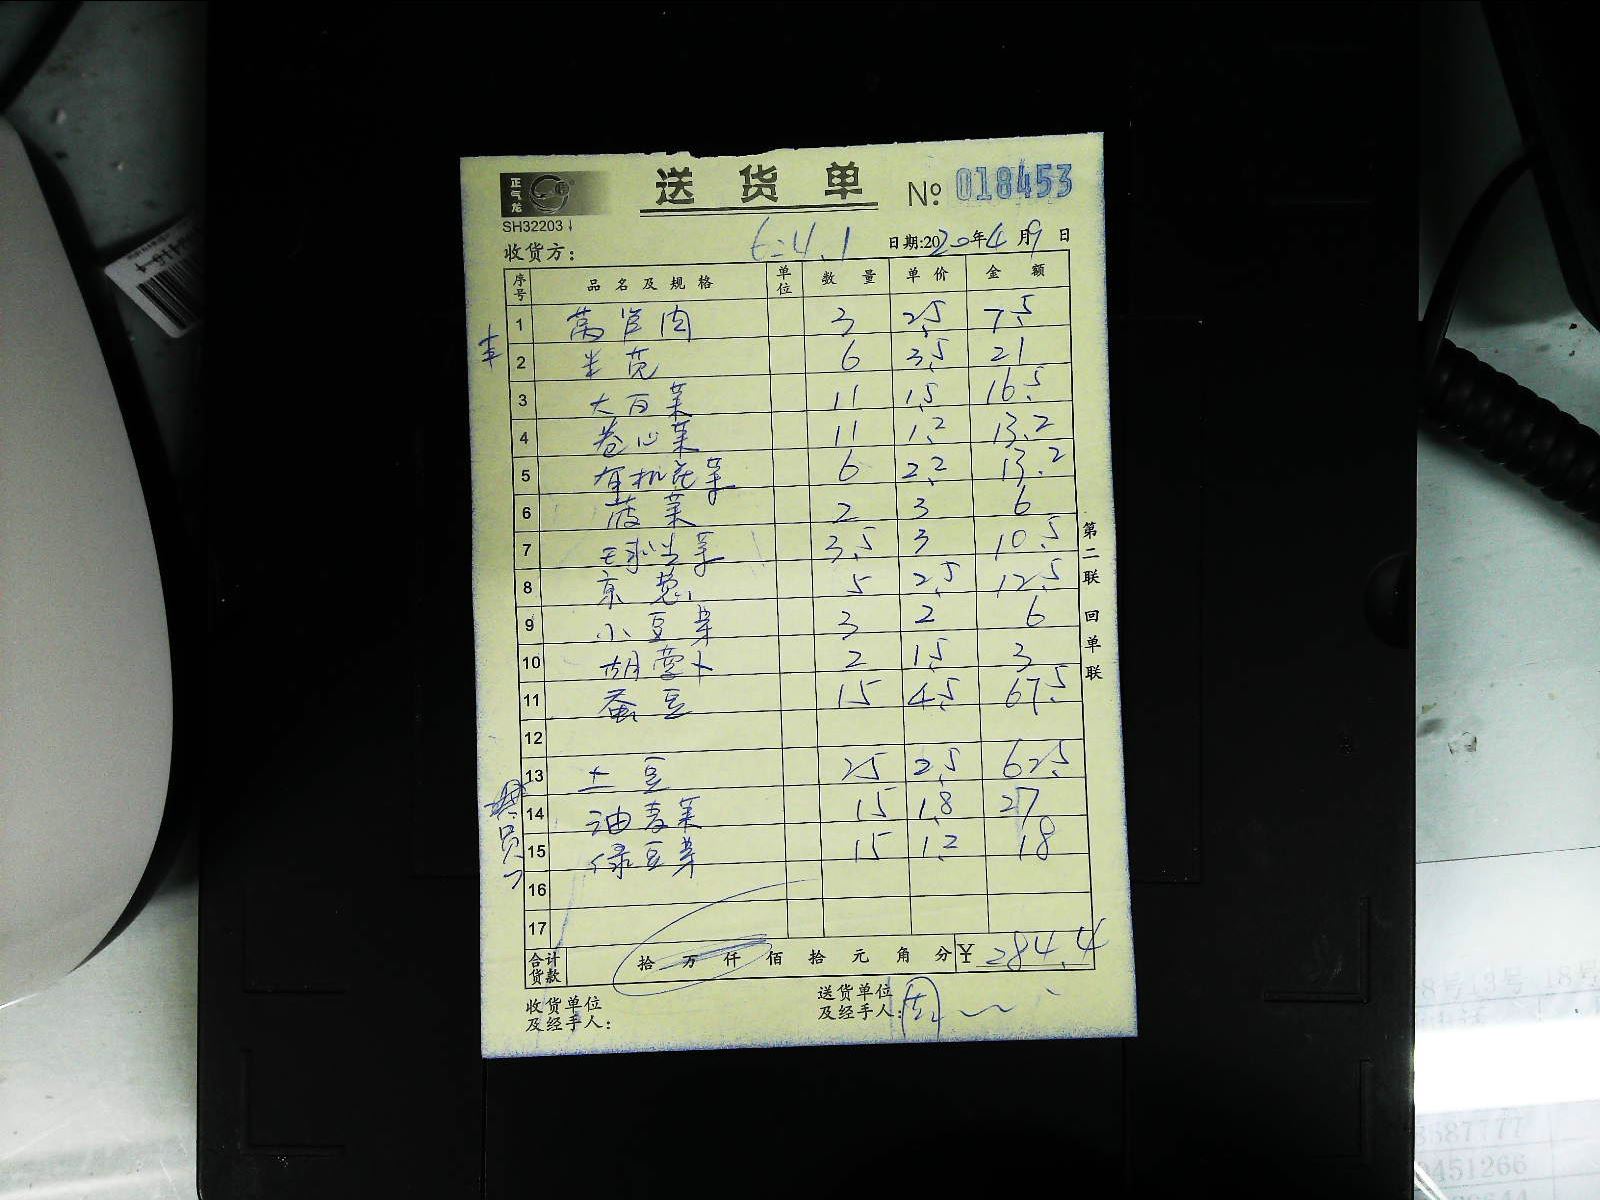 正气龙
送货单 №018453
SH32203
收货方: 日期:2020年4月9日
序号 品名及规格 单位 数量 单价 金额
1 莴宦肉 3 2.5 7.5
2 米苋 6 3.5 21
3 大百菜 11 1.5 16.5
4 卷心菜 11 1.2 13.2
5 有机花菜 6 2.2 13.2
6 菠菜 2 3 6
7 球生菜 3.5 3 10.5
8 京葱 5 2.5 12.5
9 小豆芽 3 2 6
10 胡萝卜 2 1.5 3
11 蚕豆 15 4.5 67.5
12
13 土豆 25 2.5 62.5
14 油麦菜 15 1.8 27
15 绿豆芽 15 1.2 18
16
17
合计货款 拾万仟佰拾元角分 ¥284.4
收货单位及经手人:
送货单位及经手人:
第二联 回单联
8587777
9451266